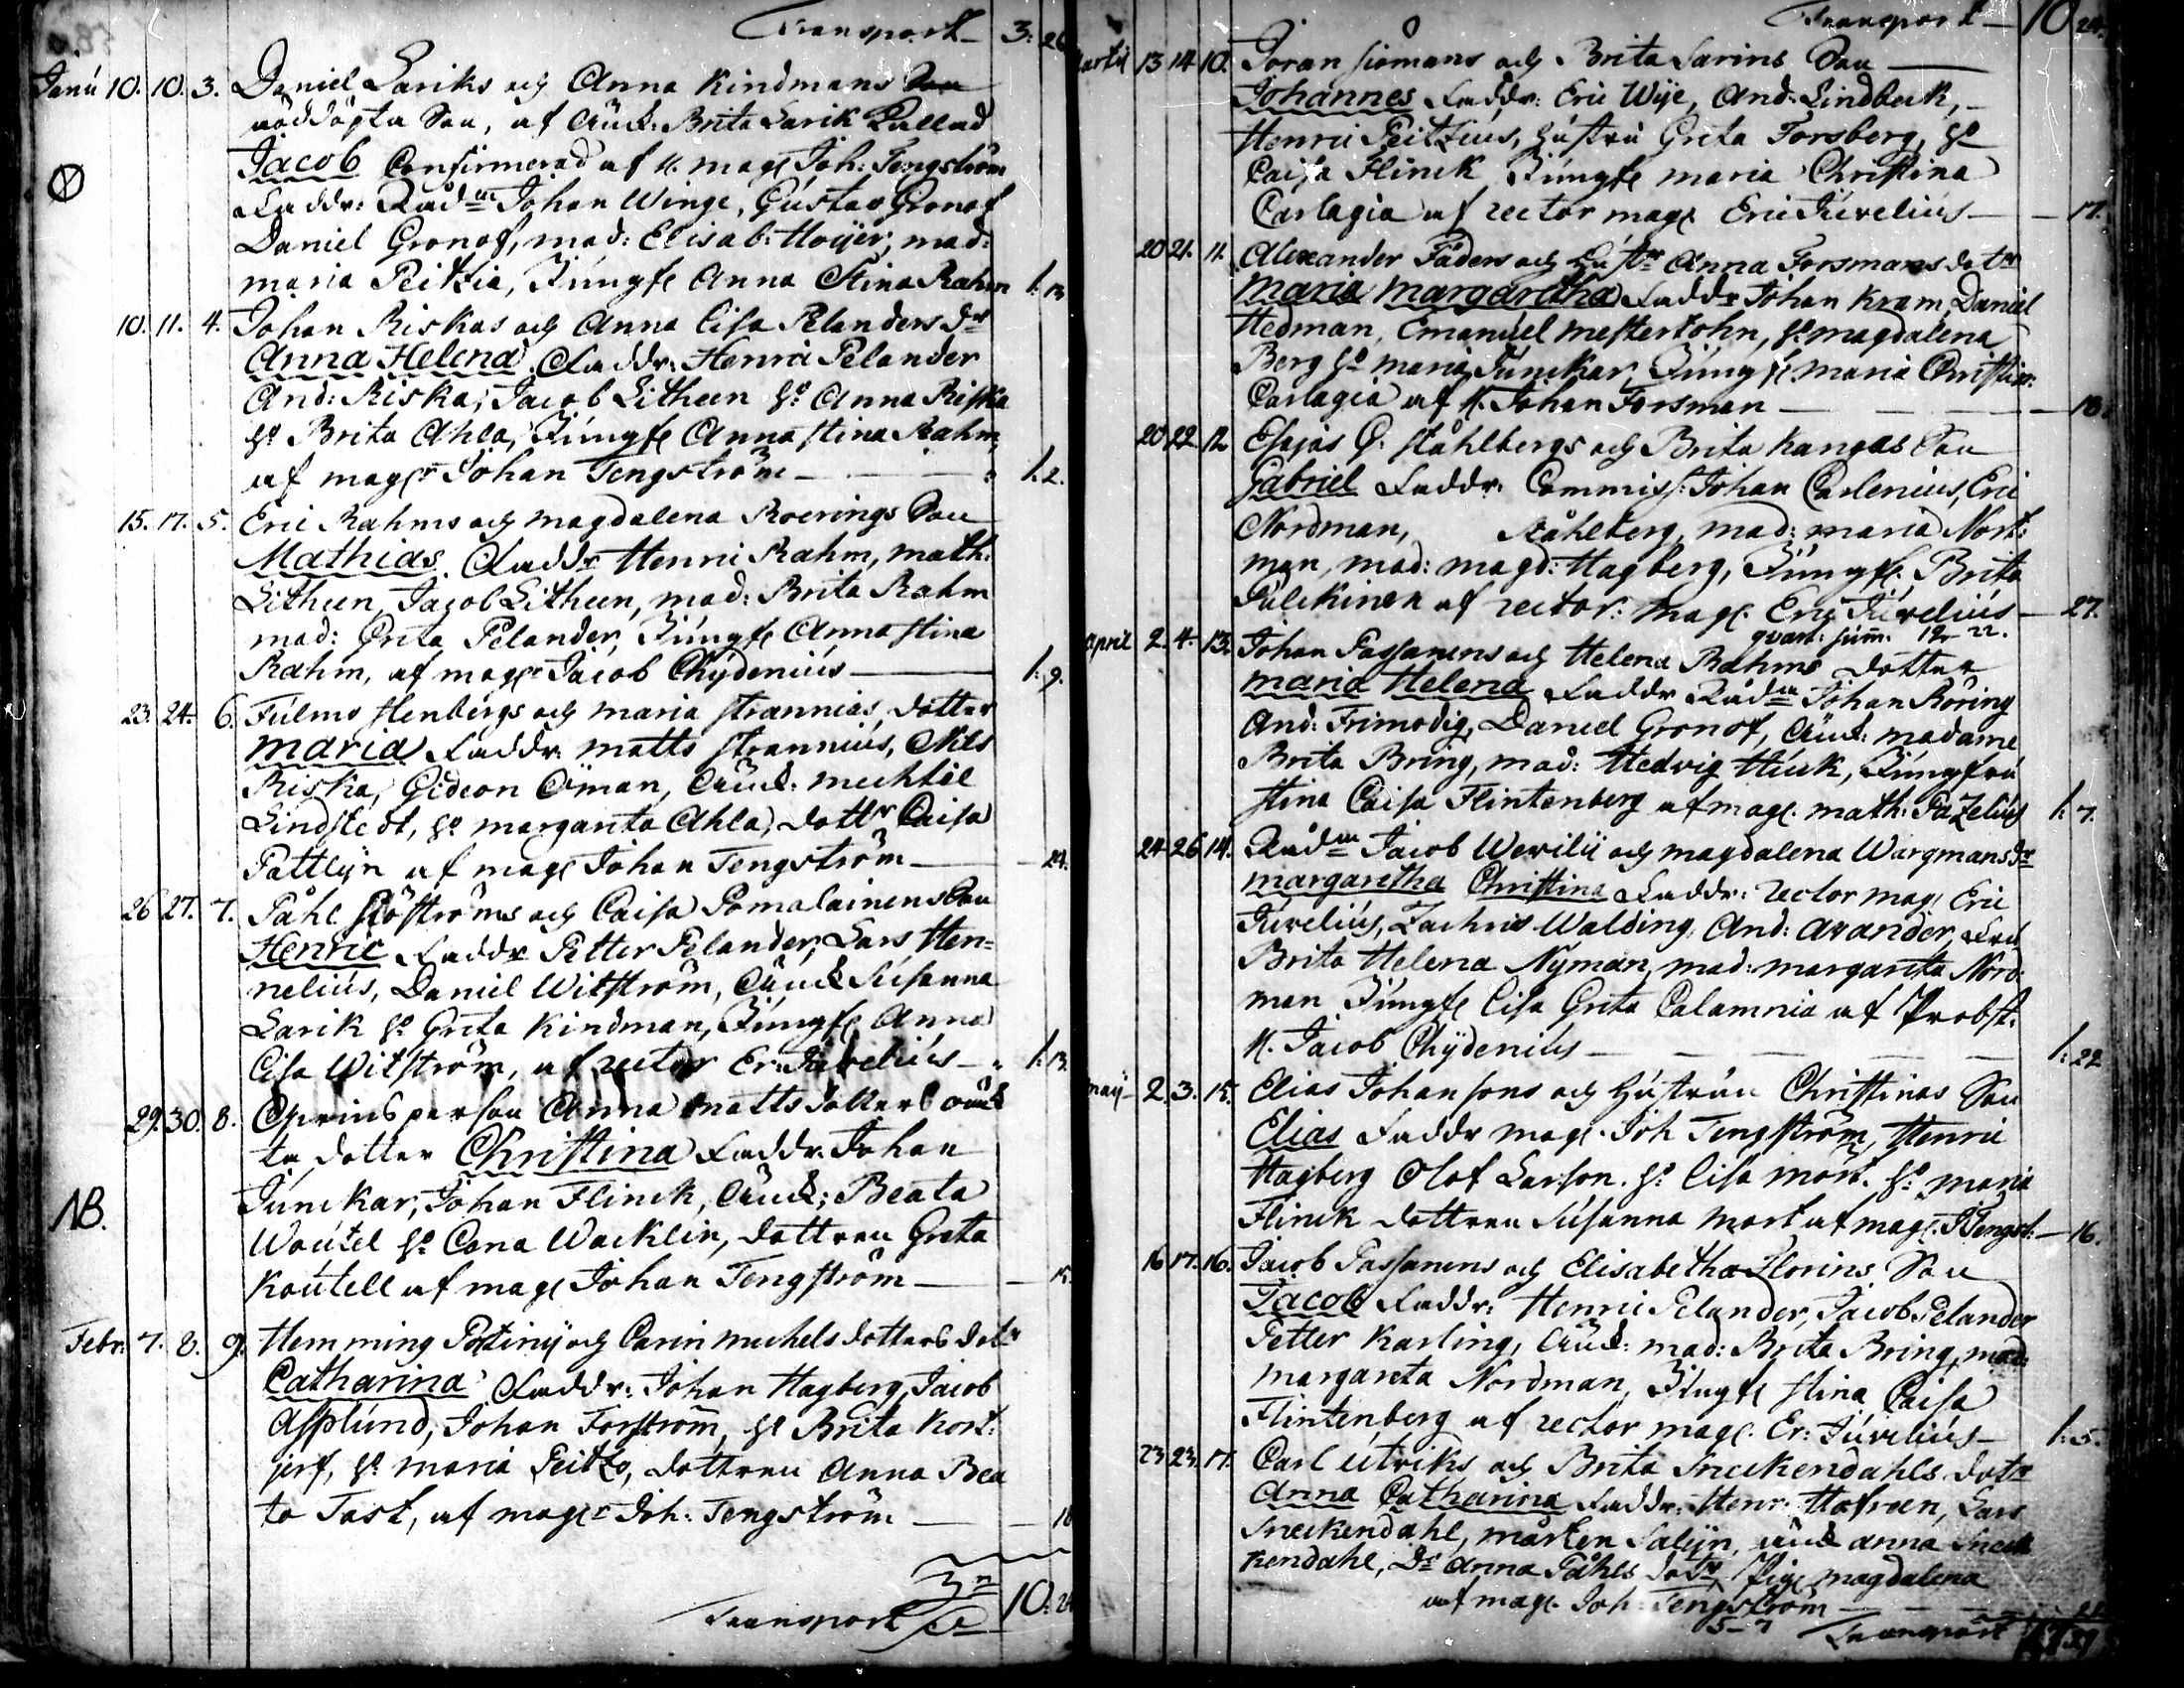 Transport 3: 26
Janú 10. 10. 3. Daniel Lariks och Anna Kindmans
nöddöpta Son, af Brita Larik kallad
Jacob Confirmerad af H. mag Joh: Tengström
Faddr: Rådm Johan Winge, Gústav Gronof
Daniel Gronof, mad: Elisab: Hoijer, mad:
maria Peitzia, Júngfr Anna Stina Rahm 1: 13
10. 11. 4. Johan Riskas och Anna Lisa Pelanders dr
Anna Helena Faddr: Henric Pelander
And: Riska, Jacob Litheen hº Anna Riska
hº Brita Ahla, Júngfr Anna Stina Rahm,
af magr Johan Tengström 1: 2.
15. 17. 5. Eric Rahms och Magdalena Roerings Son
Mathias Faddr Henric Rahm, math:
Litheen, Jacob Litheen, mad: Brita Rahm
mad: Greta Pelander, Júngfr Anna Stina
Rahm, af magr Jacob Chÿdeniús 1: 9.
23. 24. 6. Stenbergs och Maria Stranniæ, dotter
Maria Faddr: Matts Stranniús, Nils
Riska, Gideon Öman, mechtil
Lindstedt, hº margareta Ahla, dottr Caisa
Pattlijn af mag Johan Tengström 24.
26 27. 7. Påhl Siöströms och Caisa Pomalainens Son
Henric Faddr Petter Pelander, Lars Hen=
neliús, Daniel Witström, Súsanna
Larik hº Greta Kindman, Júngfr Anna
Lisa Witström, af rector Er: Júveliús 1: 13.
29. 30. 8. Anna Matts dotters
ta dotter Christina Faddr: Johan
Júnckar, Johan Flinck, Beata
hº Cana Wacklin, dottren Greta
Koútell af mag Johan Tengström 15.
NB.
Febr: 7. 8. 9. Hemming och Carin michels dotters dotr
Catharina Faddr: Johan Hagberg, Jacob
Asplúnd, Johan Forström, hº Brita Kort:
jerf, hº maria Peitzo, dottren Anna Bea
ta Tast, af magr Joh: Tengström 18
Transport 10: 24
Transport 10 24.
Martii 13 14 10. Göran Siömans och Brita Larins Son
Johannes Faddr: Eric Wije, And: Lindbeck,
Henric Peitziús, hústrú Greta Forsberg, hº
Caisa Flinck Júngfr maria Christina
Carlagia af rector mag Eric Júveliús 17.
20 21. 11. Alexander Fäders och hústr Anna Forsmans dotr
Maria Margaretha Faddr Johan Kram, Daniel
Hedman, Emanúel Mestertohn, hº magdalena
Berg hº maria Júnckar, Júngfr. maria Christin:
Carlagia af H. Johan Forsman 18.
20 22. 12 Esajas Ståhlbergs och Brita Kangas Son
Gabriel Faddr: Commiss: Johan Carleniús, Eric
Nordman, Ståhlberg, mad: maria Nort:
man, mad: magd: Hagberg, Júngfr. Brita
Púlckinen af rector: mag. Eric Júveliús 27.
April 2. 4. 13. Johan Passanens och Helena Rahms dotter
Maria Helena Faddr Rådm Johan Röring
And: Frimodig, Daniel Gronof, madame
Brita Bring, mad: Hedvig Húck, Júngfrú
Stina Caisa Flintenberg af mag. math: Pazeliús 1: 7.
24 26 14. Rådm Jacob Werilii och magdalena Wargmans dr
Margaretha Christina Faddr: rector mag. Eric
Júveliús, Zachris Walding, And: Avander, Frú
Brita Helena Nÿman, mad: margareta Nord:
man Júngfr Lisa Greta Calamnia af Probst.
H. Jacob Chÿdeniús 1: 22
Maij 2. 3. 15. Elias Johansons och hústrún Christinas Son
Elias Faddr mag. Joh Tengström, Henric
Hagberg Olof Larson. hº Lisa Mort. hº maria
Flinck dottren Súsanna Mort af mag. J Tengst: 16.
16 17. 16. Jacob Passanens och Elisabetha Florins Son
Jacob Faddr: Henric Pelander, Jacob Pelander
Petter Karling, mad: Brita Bring, mad:
margareta Nordman, Júngfr Stina Caisa
Flintenberg af rector mag. Er: Júveliús 1: 5.
23 23. 17. Carl Utriks och Brita Sneckendahls dotr
Anna Catharina Faddr: Henr: Hofreen, Lars
Sneckendahl, mårten Salijn, anna Sneck
kendahl, Dr Anna Påhls dotr, Pig. magdalena
af mag. Joh: Tengström
Transport 17 29